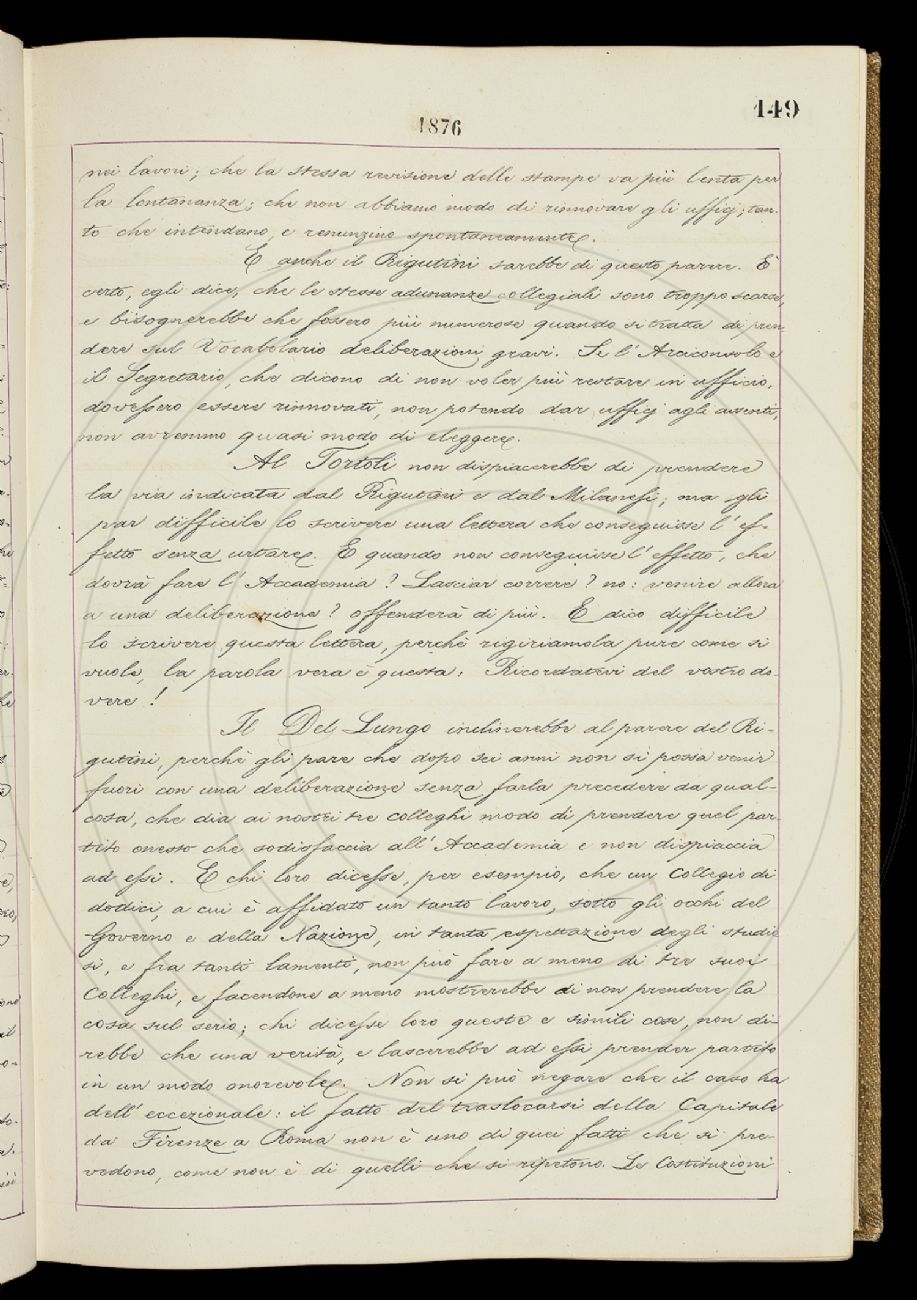 149
1876
nei lavori; che la stessa revisione delle stampe va più lenta per
la lontananza; che non abbiamo modo di rinnovare gli ufficj; tan-
to che intendano, e renunzino spontaneamente.
E anche il Rigutini sarebbe di questo parere. È
certo, egli dice, che le stesse adunanze collegiali sono troppo scarse,
e bisognerebbe che fossero più numerose quando si tratta di pren
dere sul Vocabolario deliberazioni gravi. Se l'Arciconsolo e
il Segretario, che dicono di non voler più restare in ufficio,
dovessero essere rinnovati, non potendo dar ufficj agli assenti,
non avremmo quasi modo di eleggere.
Al Tortoli non dispiacerebbe di prendere
la via indicata dal Rigutini e dal Milanesi; ma gli
par difficile lo scrivere una lettera che conseguisse l'ef-
fetto senza urtare. E quando non conseguisse l'effetto, che
dovrà fare l'Accademia? Lasciar correre? no: venire allora
a una deliberazione? offenderà di più. E dico difficile
lo scrivere questa lettera, perchè rigiriamola pure come si
vuole, la parola vera è questa: Ricordatevi del vostro do-
vere!
Il Del Lungo inclinerebbe al parere del Ri-
gutini, perchè gli pare che dopo sei anni non si possa venir
fuori con una deliberazione senza farla precedere da qual-
cosa, che dia ai nostri tre colleghi modo di prendere quel par-
tito onesto che sodisfaccia all'Accademia e non dispiaccia
ad essi. E chi loro dicesse, per esempio, che un Collegio di
dodici, a cui è affidato un tanto lavoro, sotto gli occhi del
Governo e della Nazione, in tanta espettazione degli studio
si, e fra tanti lamenti, non può fare a meno di tre suoi
Colleghi, e facendone a meno mostrerebbe di non prendere la
cosa sul serio; chi dicesse loro queste e simili cose, non di-
rebbe che una verità, e lascerebbe ad essi prender partito
in un modo onorevole. Non si può negare che il caso ha
dell'eccezionale: il fatto del traslocarsi della Capitale
da Firenze a Roma non è uno di quei fatti che si pre-
vedono, come non è di quelli che si ripetono. Le Costituzioni